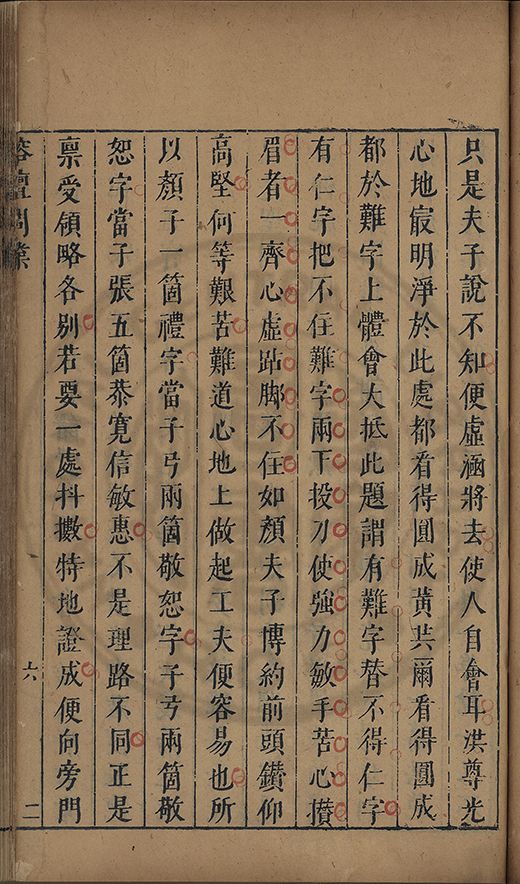 只是夫子說不知便虛涵將去使人自會耳洪尊光
心地㝡明淨於此處都看得圓成黃共爾看得圓成
都於難字上體會大抵此題謂有難字替不得仁字
有仁字把不住難字兩下投刀使強力敏手苦心攅
眉者一齊心虛跕脚不住如顏夫子博約前頭鑽仰
高堅何等艱苦難道心地上做起工夫便容易也所
以顏子一箇禮字當子弓兩箇敬恕字子弓兩箇敬
恕字當子張五箇恭寛信敏惠不是理路不同正是
禀受領略各別若要一處抖擻特地證成便向旁門
榕壇問業
六
二